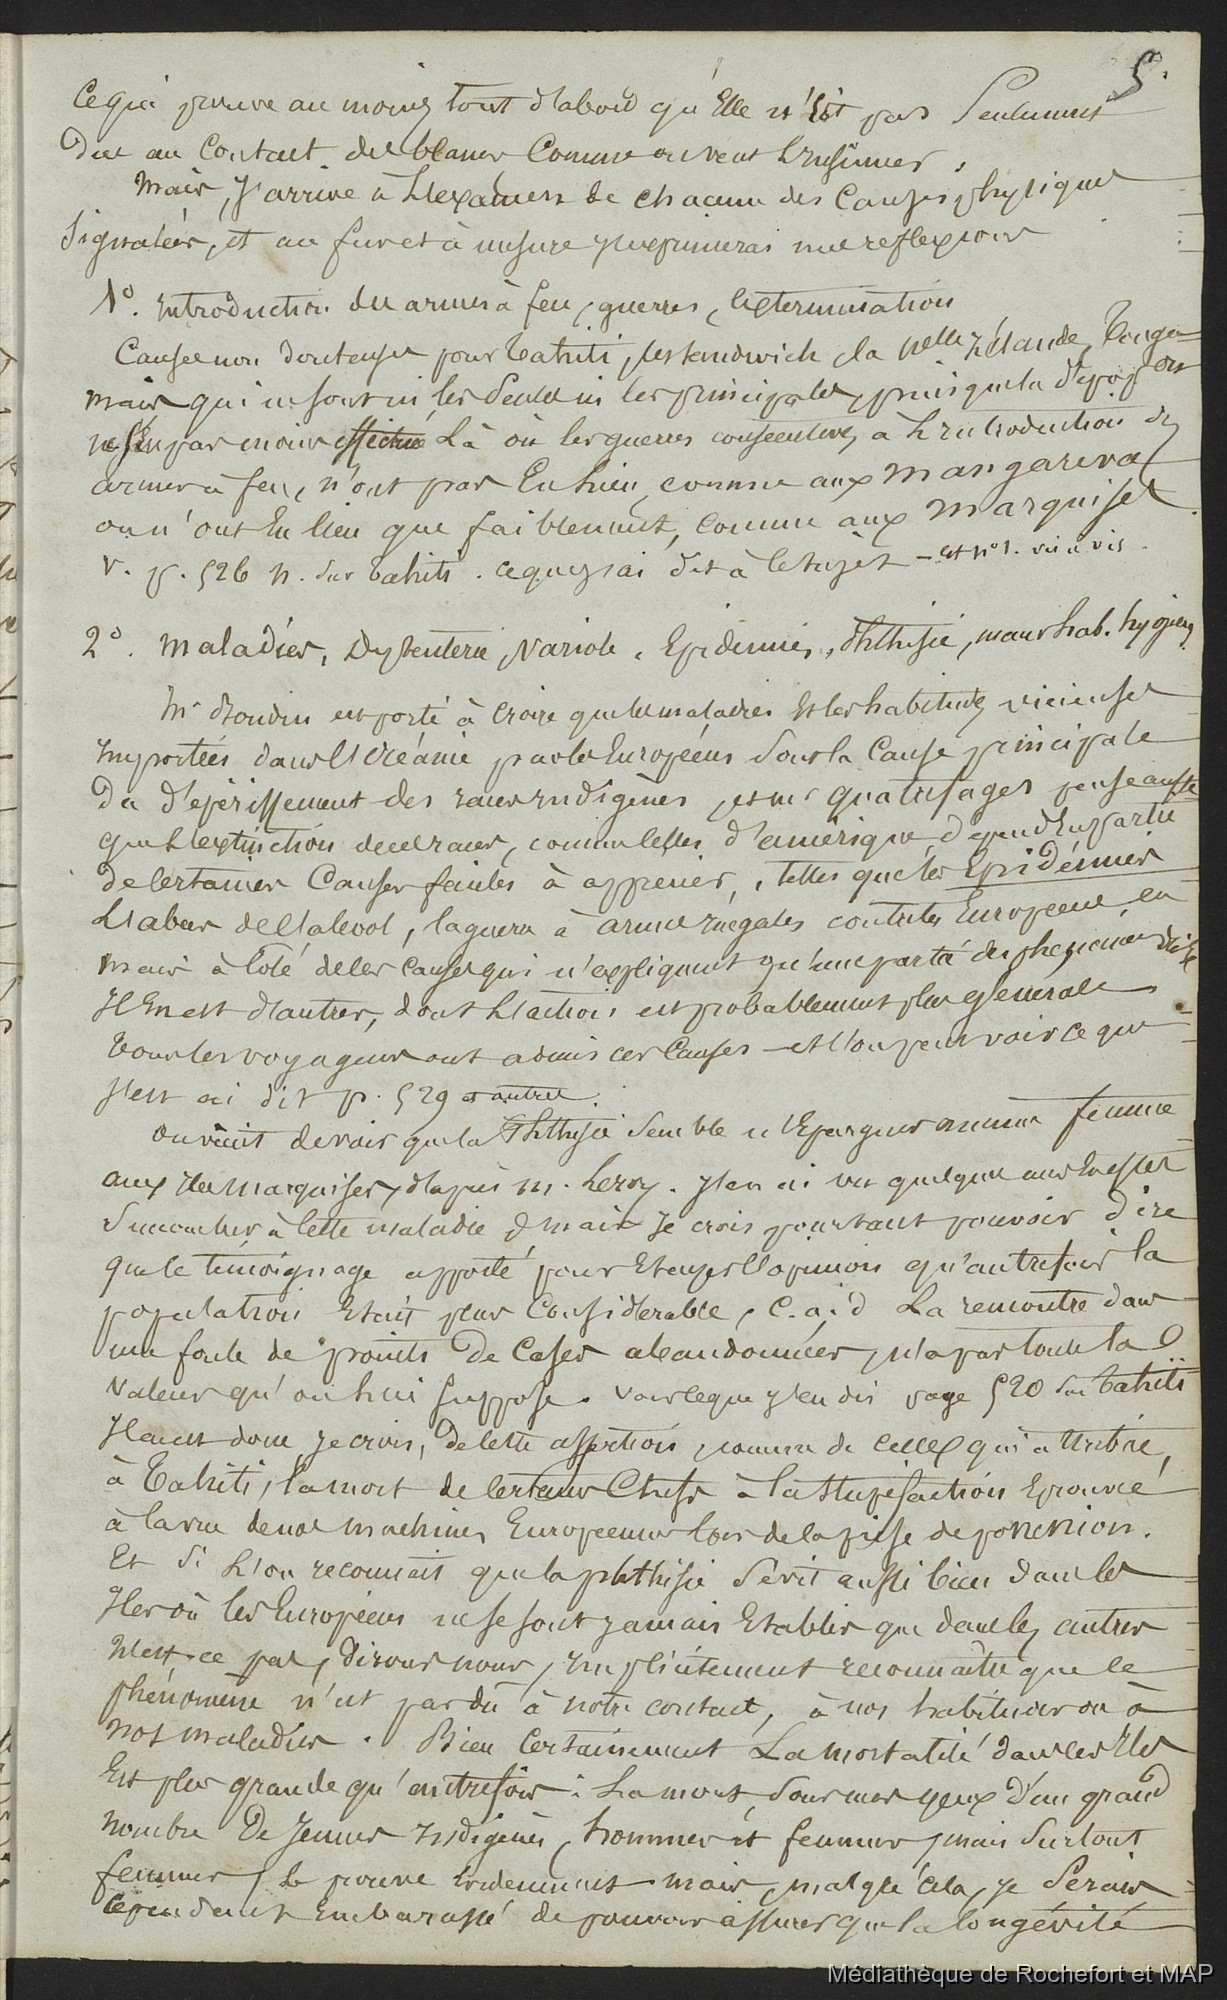 5.
Ce qui prouve au moins tout d'abord qu'Elle n'Est pas Seulement
due au Contact des blancs Comme on veut L'insinuer.
Mais, J'arrive à L'examen de chacune des Causes physiques
Signalées, et au fur et à mesure J'exprimerai mes reflexions
1º. Introduction des armes à feu, guerres, Extermination
Cause non douteuse pour Tahiti, les Sandwich, la Nelle Zélande, Tonga
mais qui ne sont ni les Seules ni les principales, puisque la dépopon
ne s'En est pas moins effectuée Là où les guerres consécutives, à L'introduction des
armes à feu, n'ont pas Eu lieu, comme aux Mangareva
ou n'ont Eu lieu que faiblement, comme aux Marquises.
V. p. 526 n. sur Tahiti. ce que j'ai dit à ce sujet — et nº 1. vis à vis.
2º. Maladies, Dysenterie, Variole, Epidémies, Phthisie, mauv. hab. hygien.
Mr Boudin est porté à Croire que les maladies Et les habitudes vicieuses
Importées dans l'Océanie par les Européens Sont la Cause principale
du dépérissement des races Indigènes, et Mr Quatrefages pense aussi
que L'extinction de ces races, comme celles d'amérique dépend En partie
de Certaines Causes faciles à apprécier, telles que les Epidémies
L'abus de l'alcool, la guerre à armes Inégales contre les Européens, etc
mais à Côté de ces causes qui n'expliquent qu'une partie des phénomènes dit-il
Il En est d'autres, dont L'action est probablement plus générale
Tous les voyageurs ont admis ces Causes — et l'on peut voir ce que
J'en ai dit p. 529 et autres.
On vient de voir que la Phthisie Semble n'Epargner aucune femme
aux Iles Marquises, d'après M. Leroy. J'en ai vu quelques unes En effet
Succomber à cette maladie, mais Je crois pourtant pouvoir dire
que le témoignage apporté pour Etayer l'opinion qu'autrefois la
population Etait plus Considérable, C.a.d La rencontre dans
une foule de points de Cases abandonnées, n'a pas toute la
valeur qu'on lui suppose. voir ce que J'en dis page 520 sur Tahiti
Il en est donc, Je crois, de cette assertion, comme de celles qui attribue,
à Tahiti, la mort de Certains Chefs à la stupéfaction Eprouvée
à la vue de nos machines Européennes lors de la prise de possession.
Et Si L'on reconnait que la phthisie Sévit aussi bien dans les
Iles où les Européens ne se sont jamais Etablis que dans les autres
N'est-ce pas, dirons nous, Implicitement reconnaître que le
phénomène n'est pas dû à notre contact, à nos habitudes ou à
nos maladies. Bien Certainement La mortalité dans les Iles
Est plus grande qu'autrefois. La mort, Sous mes yeux d'un grand
nombre De Jeunes Indigènes, hommes et femmes, mais Surtout
femmes, Le prouve Evidemment mais, malgré cela, Je Serais
Cependant Embarassé de pouvoir assurer que la longévité
Médiathèque de Rochefort et MAP